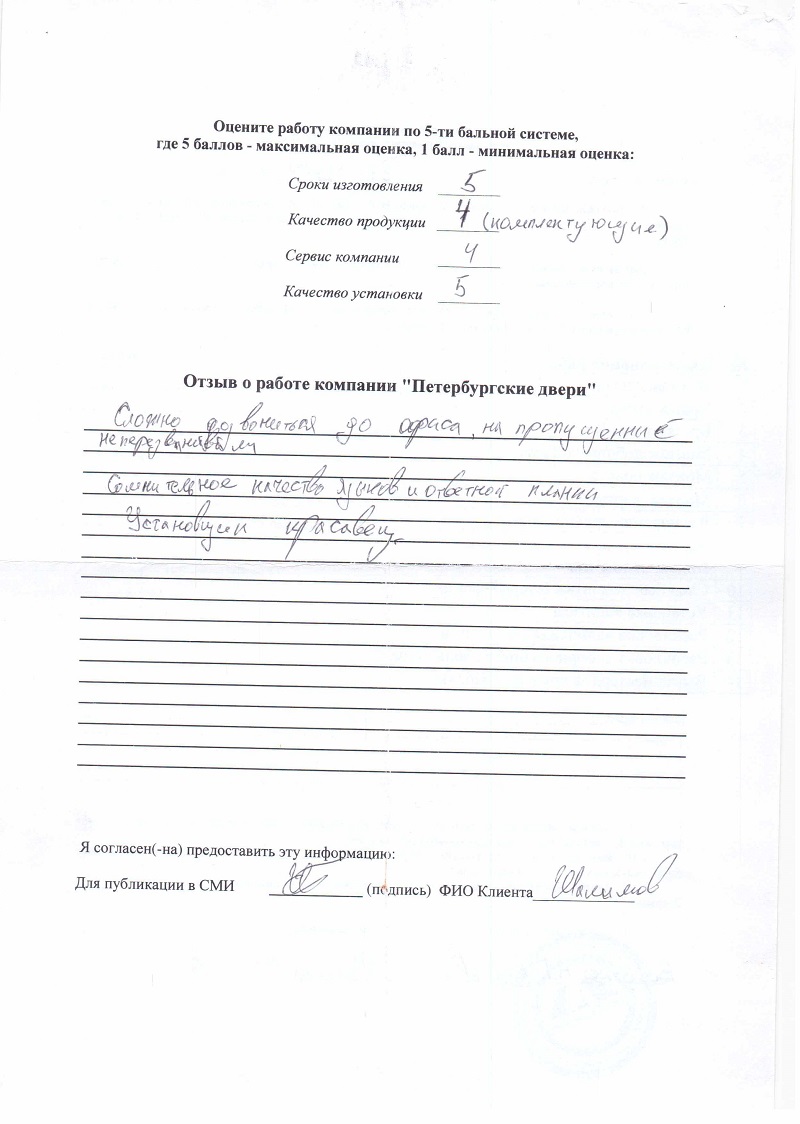 Оцените работу компании по 5-ти бальной системе,
где 5 баллов - максимальная оценка, 1 балл - минимальная оценка:
Сроки изготовления 5
Качество продукции 4 (комплектующие)
Сервис компании 4
Качество установки 5
Отзыв о работе компании "Петербургские двери"
Сложно дозвониться до офиса, на пропущенные
не перезванивали
Сомнительное качество замков и ответной планки
Установщик красавец
Я согласен(-на) предоставить эту информацию:
Для публикации в СМИ (подпись) ФИО Клиента